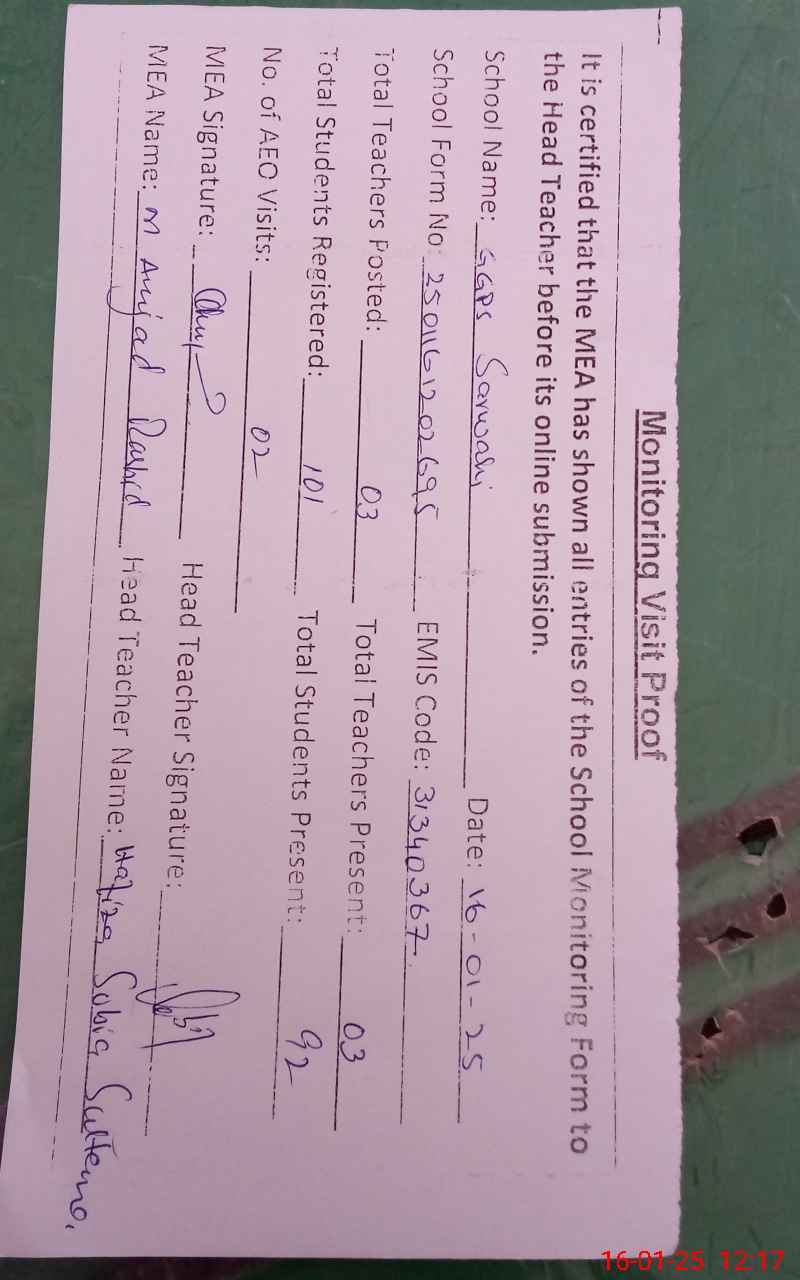 Monitoring Visit Proof
It is certified that the MEA has shown all entries of the School Monitoring Form to
the Head Teacher before its online submission.
School Name: GGPS Sarwahi Date: 16-01-25
School Form No: 2501161202695 EMIS Code: 31340367
Total Teachers Posted: 03 Total Teachers Present: 03
Total Students Registered: 101 Total Students Present: 92
No. of AEO Visits: 02
MEA Signature: Head Teacher Signature:
MEA Name: M Amjad Rashid Head Teacher Name: Hafiza Sobia Sultana
16-01-25 12:17